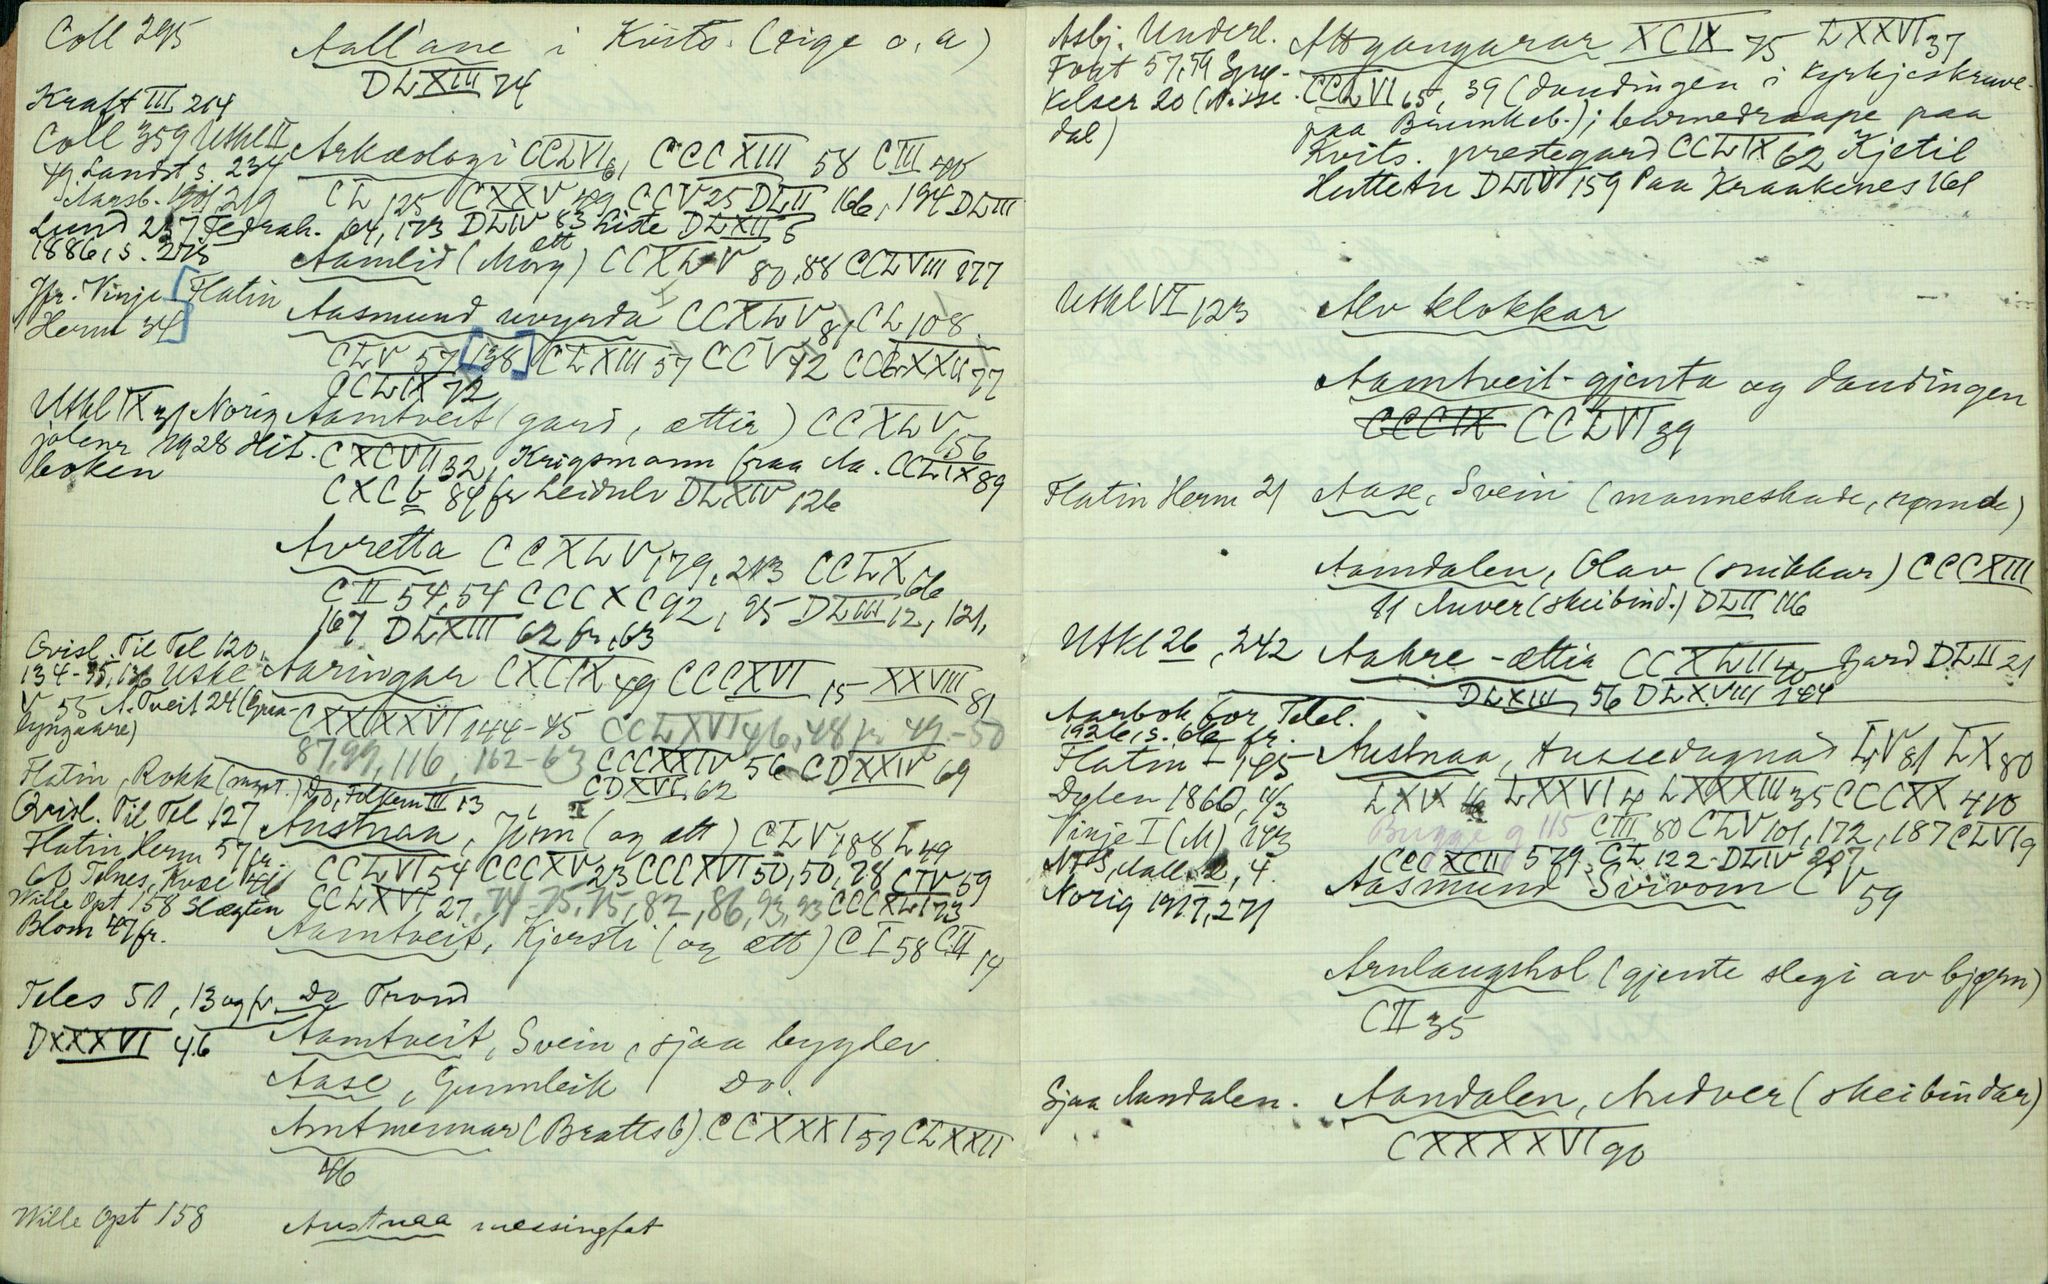 Coll 295
Aall'ane i Kvits. (eige o. a)
DLXIII 74
Kraft III 214
Coll 359 Utkl II
49 Landst s. 234
Arkæologi CCLVI 61 CCCXIII 58 CIII 40
Aarsb. 1901, 219
CL 125 CXXV 49 CCV 25 DLII 166, 194 DLIII
Lund 257 Fedrah. 64, 173 DLIV 83 Liste DLXII 5
1886, s. 275
Aamlid (Morg) ætt CCXLV 80, 88 CCLVIII 177
Jfr. Vinje [Flatin
Herm 34]
Aasmund uvyrda CCXLV 81 CL 108
CLV 57 [138] CLXIII 57 CCV 42 CCLXXII 77
CCLIX 72
Utkl IX 31 Norig
Aamtveit (gard, ættir) CCXLV 156
jolenr 1928 Hit.
boken
CXCVII 32, Krigsmann fraa Aa. CCLIX 89
CXC b 84 fr Leidulv DLXIV 126
Avretta CCXLV 179, 213 CCLX 66
CII 54, 54 CCCXC 92, 95 DLIII 12, 121,
167 DLXIII 62 fr, 63
Qvisl. Til Tel 120,
134-35, 136 Utkl
V 55 A. Tveit 24 (Graa-
Aaringar CXCIX 49 CCCXVI 15 - XXVIII 81
CXXXXVI 144-45 CCLXVI 46, 48 fr 49-50
87, 99, 116, 162-63 CCCXXIV 56 CDXXIV 69
Flatin, Rokk (mpt.) Do, Folkem III 13
CDXVI 62
Qvisl. Til Tel 127
Austnaa, Jørn (og ætt) CLV 188 L 49
Flatin Herm 57 fr.
CCLVI 54 CCCXV 23 CCCXVI 50, 50, 78 CIV 59
60 Telnes, Kvse 46
CCLXVI 27, 74-75, 75, 82, 86, 93, 93 CCCXLI 73
Wille Opt 158 Slægten
Blom 47 fr.
Aamtveit, Kjersti (og ætt) CI 58 CII 14
Teles 51, 13 og fr. Do Trond
DXXXVI 46
Aamtveit, Svein, sjaa bygdev
Aase, Gunnleik Do.
Amtmennar (Brattsb) CCXXXI 51 CLXXII
46
Wille Opt 158
Austnaa messingfat
Asbj. Underl.
Attgangarar XCIX 75 LXXVI 37
Folt 57, 79
CCLVI 65, 39 (daudingen i kyrkjeskruve-
kelser 20 (Nisse-
dal)
paa Brunkeb.); barnedraape paa
Kvits. prestegard CCLIX 62 Kjetil
DLIV 159 Paa Kraakenes 161
Utkl VI 123
Alv klokkar
Aamtveit-gjenta og daudingen
CCCIX CCLVI 39
Flatin Herm 21
Aase, Svein (manneskade, rømde)
Aamdalen, Olav (snikkar) CCCXIII
81 Auver (skeibind.) DLII 116
Utkl 26, 242
Aabre-ættir CCXLII 40 Gard DLII 21
DLXIII 56 DLXVIII 144
Aarbok for Telel.
1926, s. 66 fr.
Flatin I 195
Austnaa, Aussedugnad LV 81 LX 80
Dølen 1860, 4/3
LXIX 16 LXXVI 4 LXXXIII 35 CCCXX 410
Vinje I (M) 143
Bugge g 115 CIII 80 CLV 101, 172, 187 CLVI 9
NFS, Mall. 2, 4.
CCCXCII 579, CL 122 DLIV 207
Norig 1917, 271
Aasmund Svivom CV 59
Arnlaugshol (gjente slegi av bjørn)
CII 35
Sjaa Aamdalen.
Aandalen, Audver (skeibindar)
CXXXXVI 90